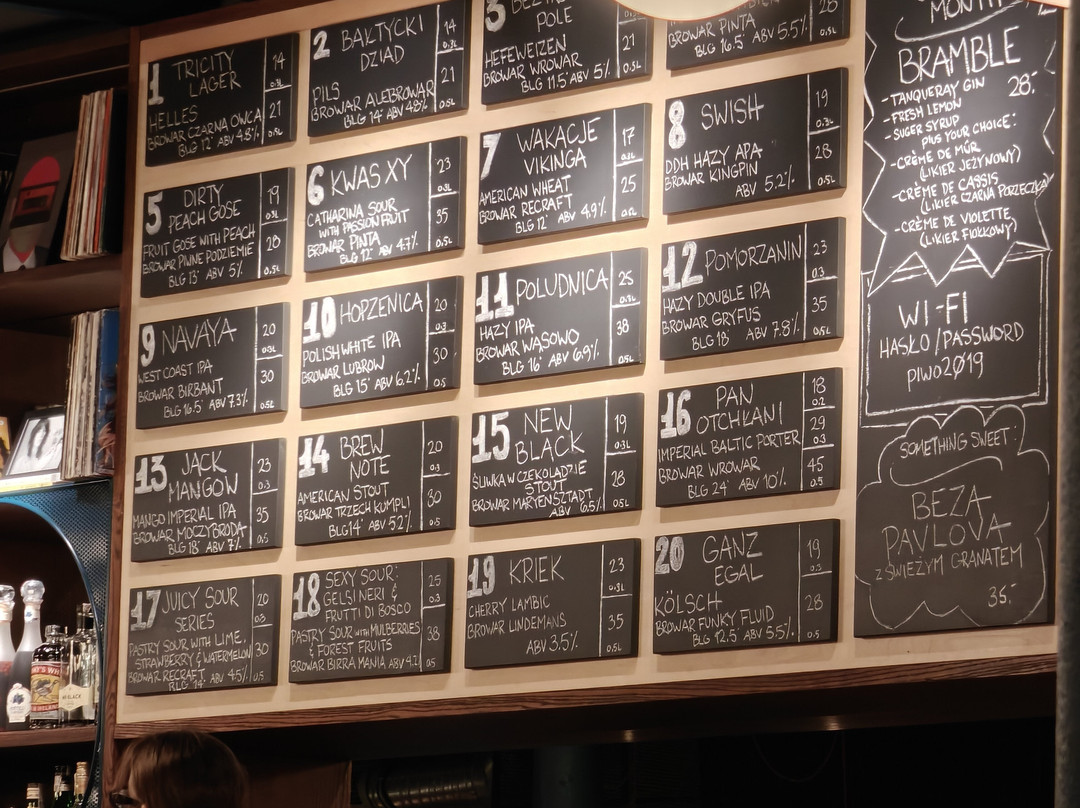 1 TRICITY
LAGER
14
0.3L
21
0.5L
HELLES
BROWAR CZARNA OWCA
BLG 12° ABV 4.8%
2 BAŁTYCKI
DZIAD
14
0.3L
21
0.5L
PILS
BROWAR ALEBROWAR
BLG 14° ABV 4.8%
3
POLE
0.3L
21
0.5L
HEFEWEIZEN
BROWAR WROWAR
BLG 11.5° ABV 5%
28
0.5L
BROWAR PINTA
BLG 16.5° ABV 5.5%
5 DIRTY
PEACH GOSE
19
0.3L
28
0.5L
FRUIT GOSE WITH PEACH
BROWAR PIWNE PODZIEMIE
BLG 13° ABV 5%
6 KWAS XY
23
0.3L
35
0.5L
CATHARINA SOUR
WITH PASSIONFRUIT
BROWAR PINTA
BLG 12° ABV 4.7%
7 WAKACJE
VIKINGA
17
0.3L
25
0.5L
AMERICAN WHEAT
BROWAR RECRAFT
BLG 12° ABV 4.9%
8 SWISH
19
0.3L
28
0.5L
DDH HAZY APA
BROWAR KINGPIN
ABV 5.2%
9 NAVAYA
20
0.3L
30
0.5L
WEST COAST IPA
BROWAR BIRBANT
BLG 16.5° ABV 7.3%
10 HOPZENICA
20
0.3
30
0.5
POLISH WHITE IPA
BROWAR LUBROW
BLG 15° ABV 6.2%
11 POŁUDNICA
25
0.3L
38
0.5L
HAZY IPA
BROWAR WĄSOWO
BLG 16° ABV 6.9%
12 POMORZANIN
23
0.3
35
0.5
HAZY DOUBLE IPA
BROWAR GRYFUS
BLG 18 ABV 7.8%
13 JACK
MANGOW
23
0.3
35
0.5
MANGO IMPERIAL IPA
BROWAR MOCZYBRODA
BLG 18° ABV 7%
14 BREW
NOTE
20
0.3
30
0.5
AMERICAN STOUT
BROWAR TRZECH KUMPLI
BLG 14° ABV 5.2%
15 NEW
BLACK
19
0.3L
28
0.5L
ŚLIWKA W CZEKOLADZIE
STOUT
BROWAR MARYENSZTADT
ABV 6.5%
16 PAN
OTCHŁANI
18
0.2
29
0.3
45
0.5
IMPERIAL BALTIC PORTER
BROWAR WROWAR
BLG 24° ABV 10%
17 JUICY SOUR
SERIES
20
0.3
30
0.5
PASTRY SOUR WITH LIME,
STRAWBERRY & WATERMELON
BROWAR RECRAFT
BLG 14° ABV 4.5%
18 SEXY SOUR:
GELSI NERI &
FRUTTI DI BOSCO
25
0.3
38
0.5
PASTRY SOUR WITH MULBERRIES
& FOREST FRUITS
BROWAR BIRRA MANIA ABV 4.2%
19 KRIEK
23
0.3L
35
0.5L
CHERRY LAMBIC
BROWAR LINDEMANS
ABV 3.5%
20 GANZ
EGAL
19
0.3
28
KÖLSCH
BROWAR FUNKY FLUID
BLG 12.5° ABV 5.5%
MONTH
BRAMBLE
28,-
-TANQUERAY GIN
-FRESH LEMON
-SUGER SYRUP
PLUS YOUR CHOICE:
-CRÈME DE MÛR
(LIKIER JEŻYNOWY)
-CRÈME DE CASSIS
(LIKIER CZARNA PORZECZKA)
-CRÈME DE VIOLETTE
(LIKIER FIOŁKOWY)
WI-FI
HASŁO/PASSWORD
piwo2019
SOMETHING SWEET:
BEZA
PAVLOVA
Z ŚWIEŻYM GRANATEM
35,-